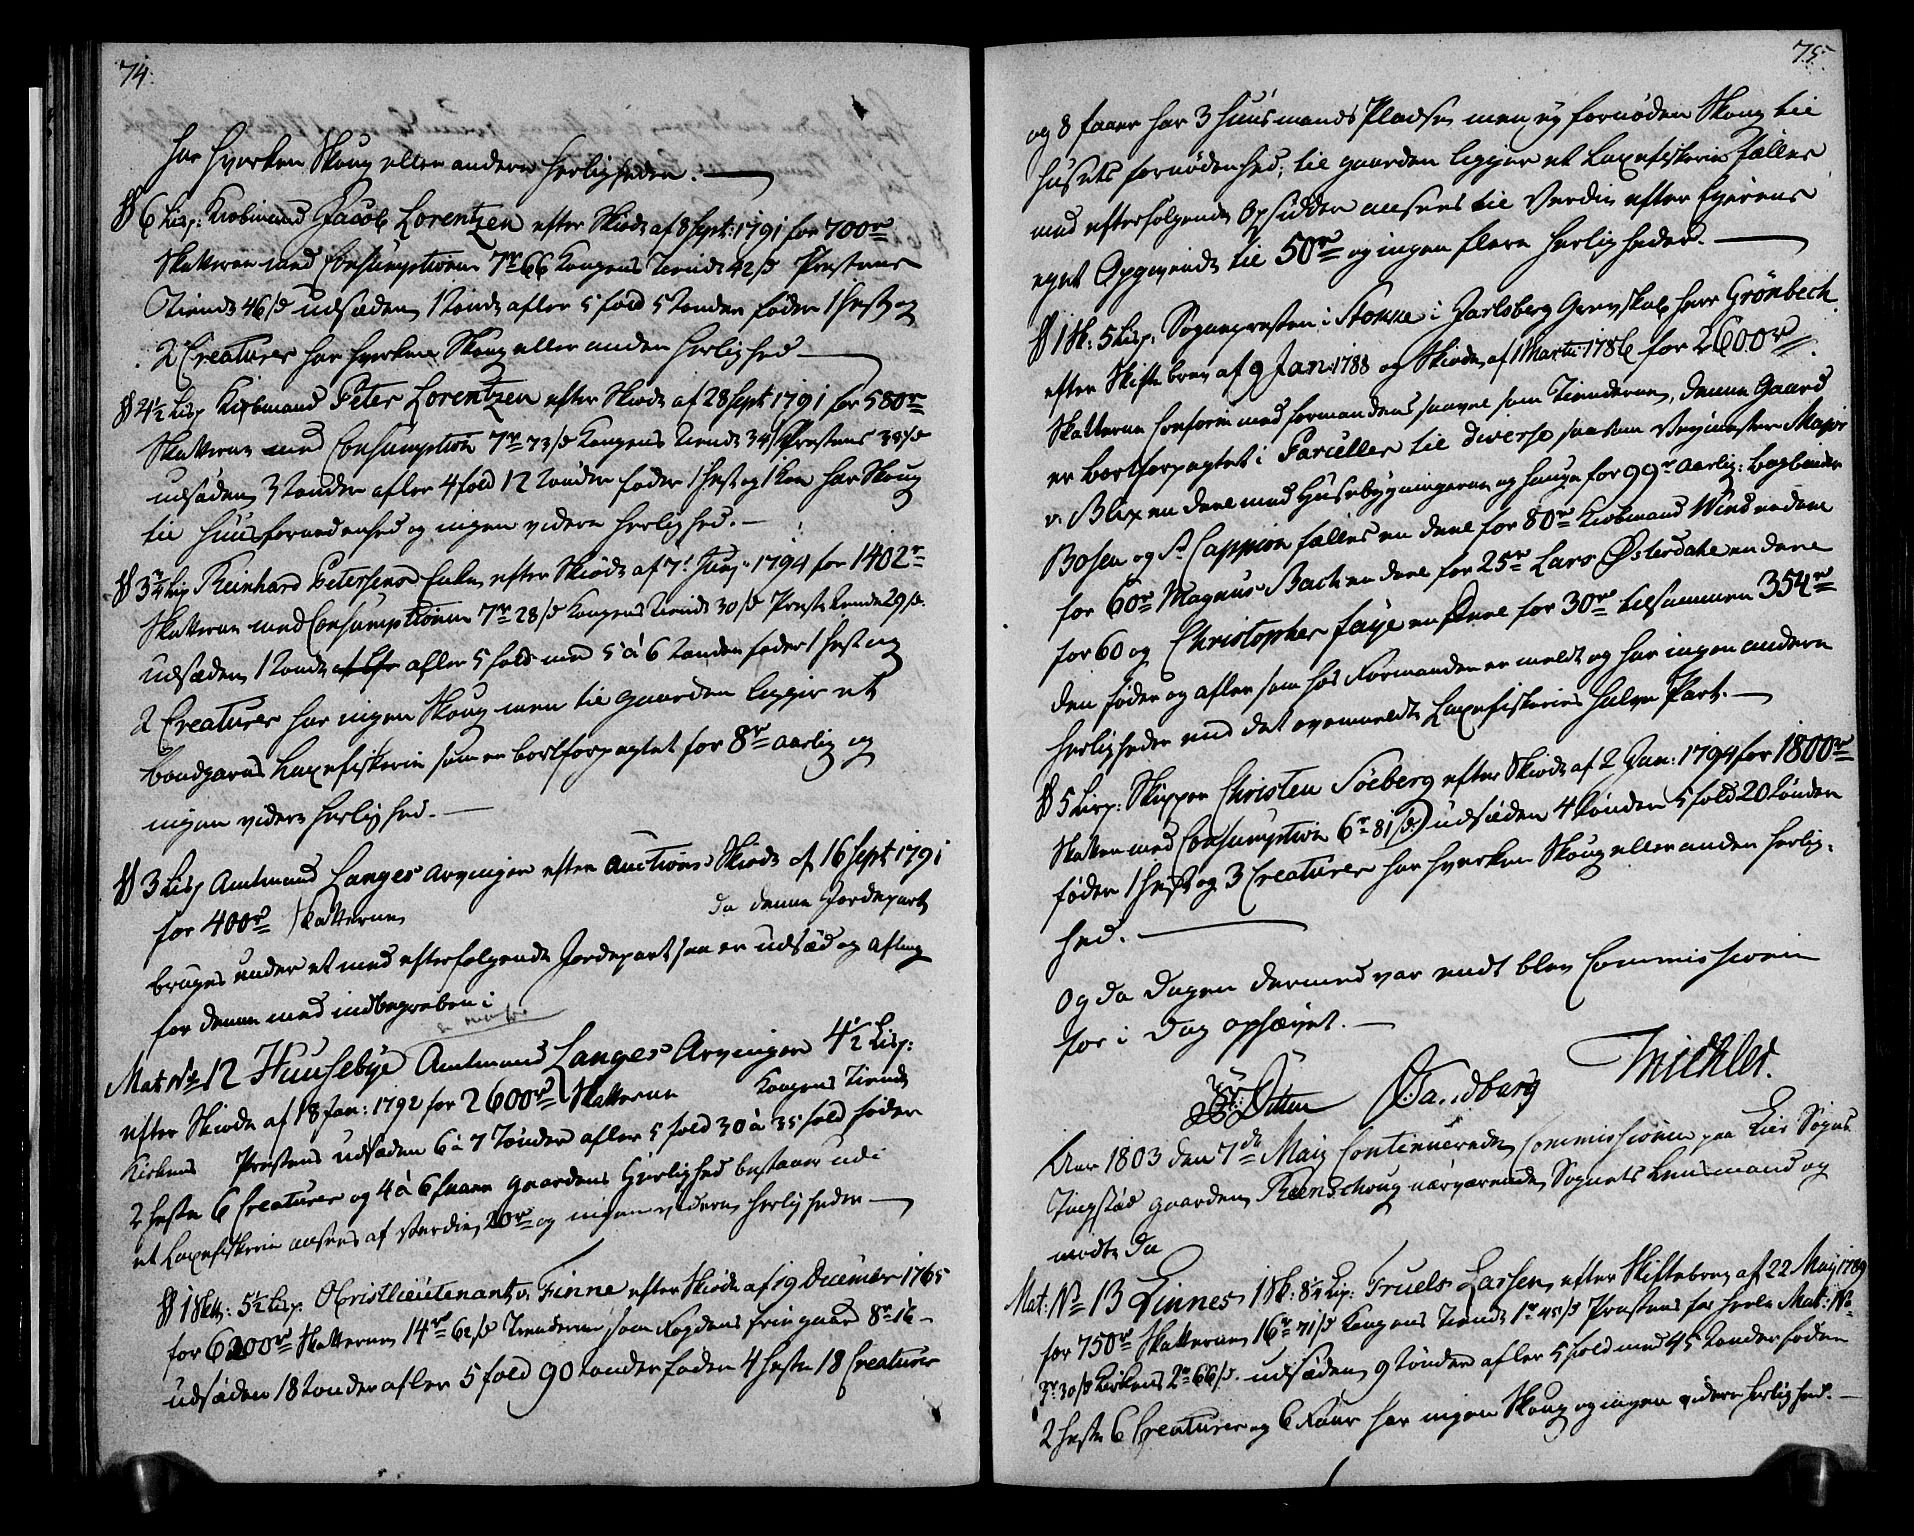 74.
har hverken Skoug eller andere Herligheder. —
§ 6 Lisp: Kiøbmand Jacob Lorentzen efter Skiøde af 8 Sept: 1791 for 700 rd
Skatterne med Consumptionen 7 rd 66 Kongens Tiende 42 s Præstens
Tiende 46 s udsæden 1 Tønde afler 5 fold 5 Tønder føder 1 Hest og
2 Creaturer har hverken Skoug eller anden Herlighed —
§ 4½ Lisp Kiøbmand Peter Lorentzen efter Skiøde af 28 Sept 1791 for 580 rd
Skatterne med Consumption 7 rd 73 s Kongens Tiende 34 s Præstens 38 s
udsæden 3 Tønder afler 4 fold 12 Tønder føder 1 Hest og 1 Koe har Skoug
til Huusfornødenhed og ingen videre Herlighed. —
§ 3¾ Lisp Reinhard Petersens Enke efter Skiøde af 7 Junj 1794 for 1402 rd
Skatterne med Consumptionen 7 rd 28 s Kongens Tiende 30 s Præste Tiende 29 s.
udsæden 1 Tønde afler 5 fold med 5 à 6 Tønder føder 1 Hest og
2 Creaturer har ingen Skoug men til gaarden ligger et
Laxefiskerie som er bortforpagtet for 8 rd aarlig og
ingen videre Herlighed. —
§ 3 Lisp Amtmand Langes Arvinger efter Auctions Skiøde af 16 Sept 1791
for 400 rd Skatterne da denne Jordepart
bruges under et med efterfølgende Jordepart saa er udsæd og afling
for denne med indbegreben i
Mat: No 12 Huusebye Amtmand Langes Arvinger 4½ Lisp:
efter Skiøde af 18 Jan: 1792 for 2600 rd Skatterne Kongens Tiende
Kirkens Præstens udsæden 6 à 7 Tønder afler 5 fold 30 à 35 fold føder
2 Heste 6 Creaturer og 4 à 6 faaer gaardens Herlighed bestaaer udi
et Laxefiskerie ansees af Værdie 20 rd og ingen videre Herligheder —
§ 1 Skp: 5½ Lisp: Obristlieutenant v. Finne efter Skiøde af 19 December 1765
for 6200 rd Skatterne 14 rd 62 s Tienderne som Fogdens fri gaard 8 rd 16 –
udsæden 18 Tønder afler 5 fold 90 Tønder føder 4 Heste 18 Creaturer
75.
og 8 faaer har 3 Huusmands Pladse men ey fornøden Skoug til
Husets fornødenhed; til gaarden ligger et Laxefiskerie fælles
med efterfølgende Opsidder ansees til Værdie efter Ejerens
eget Opgivende til 50 rd og ingen flere Herligheder. —
§ 1 Sk: 5 Lisp: Sognepresten i Stokke i Jarlsberg Grevskab Herr Grönbech
efter Skiftebrev af 9 Jan: 1788 og Skiøde af 1 Martii 1786 for 2600 rd
Skatterne conform med formandens saavel som Tienderne, denne Gaard
er bortforpagtet i Parceller til diverse saasom Veymester Major
v. Blix en deel med Husebygningerne og Hauge for 99 rd aarlig: Bogbinder
Bosen og Sr Cappion fælles en deel for 80 rd Kiøbmand Wind en deel
for 60 rd Magnus Bach en deel for 25 rd Lars Østerdahl en deel
for 60 og Christopher faye en Deel for 30 rd tilsammen 354 rd
den føder og afler som hos Formanden er meldt og har ingen andere
Herligheder end det ovenmeldte Laxefiskeries halve Part. —
§ 5 Lisp: Skipper Christen Söeberg efter Skiøde af 2 Jan: 1794 for 1800 rd
Skatter med Consumption 6 rd 81 s udsæden 4 Tønder 5 fold 20 Tønder
føder 1 Hest og 3 Creaturer har hverken Skoug eller anden Herlig-
hed. —
Og da Dagen dermed var endt blev Commissionen
for i Dag ophævet. —
Ditten Sandburg Michlet.
Aar 1803 den 7de Maij Continuerede Commissionen paa Lier Sogns
Tingstæd gaarden Reenschoug nærværende Sognets Lensmand og
mødte da
Mat: No 13 Linnes 1 Sk: 8½ Lisp: Truels Larsen efter Skiftebrev af 22 Maij 1789
for 750 rd Skatterne 16 rd 71 s Kongens Tiende 1 rd 45 s Præstens for heele Mat: No
3 rd 30 s Kirkens 2 rd 66 s. udsæden 9 Tønder afler 5 fold med 45 Tønder føder
2 Heste 6 Creaturer og 6 Faaer har ingen Skoug og ingen videre Herlighed. —